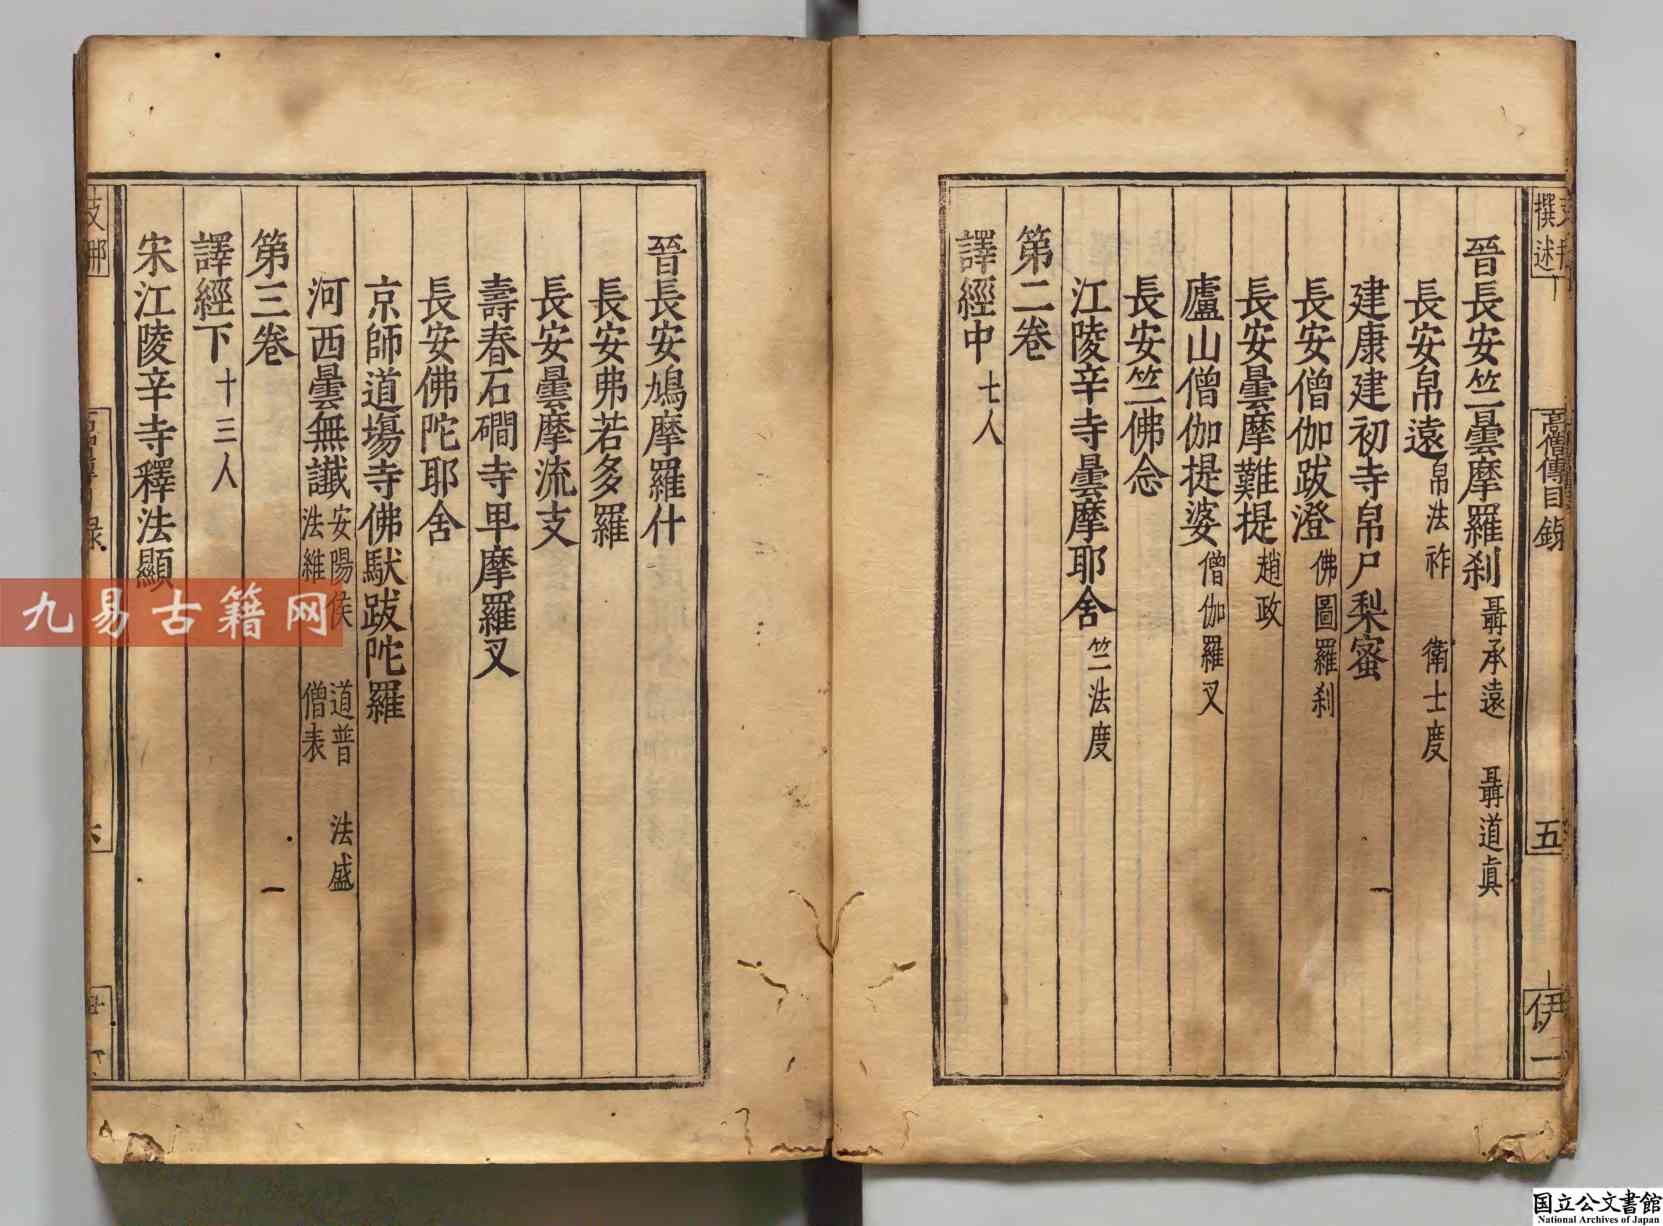 撰述
高僧傳目錄
五
伊一
晉長安竺曇摩羅刹 聶承遠 聶道眞
長安帛遠 帛法祚 衛士度
建康建初寺帛尸梨蜜
長安僧伽跋澄 佛圖羅刹
長安曇摩難提 趙政
廬山僧伽提婆 僧伽羅叉
長安竺佛念
江陵辛寺曇摩耶舍 竺法度
第二卷
譯經中 七人
晉長安鳩摩羅什
長安弗若多羅
長安曇摩流支
壽春石磵寺卑摩羅叉
長安佛陀耶舍
京師道場寺佛馱跋陀羅
河西曇無讖 安陽侯 道普 法盛 法維 僧表
第三卷
譯經下 十三人
宋江陵辛寺釋法顯
支那
九易古籍网
国立公文書館
National Archives of Japan